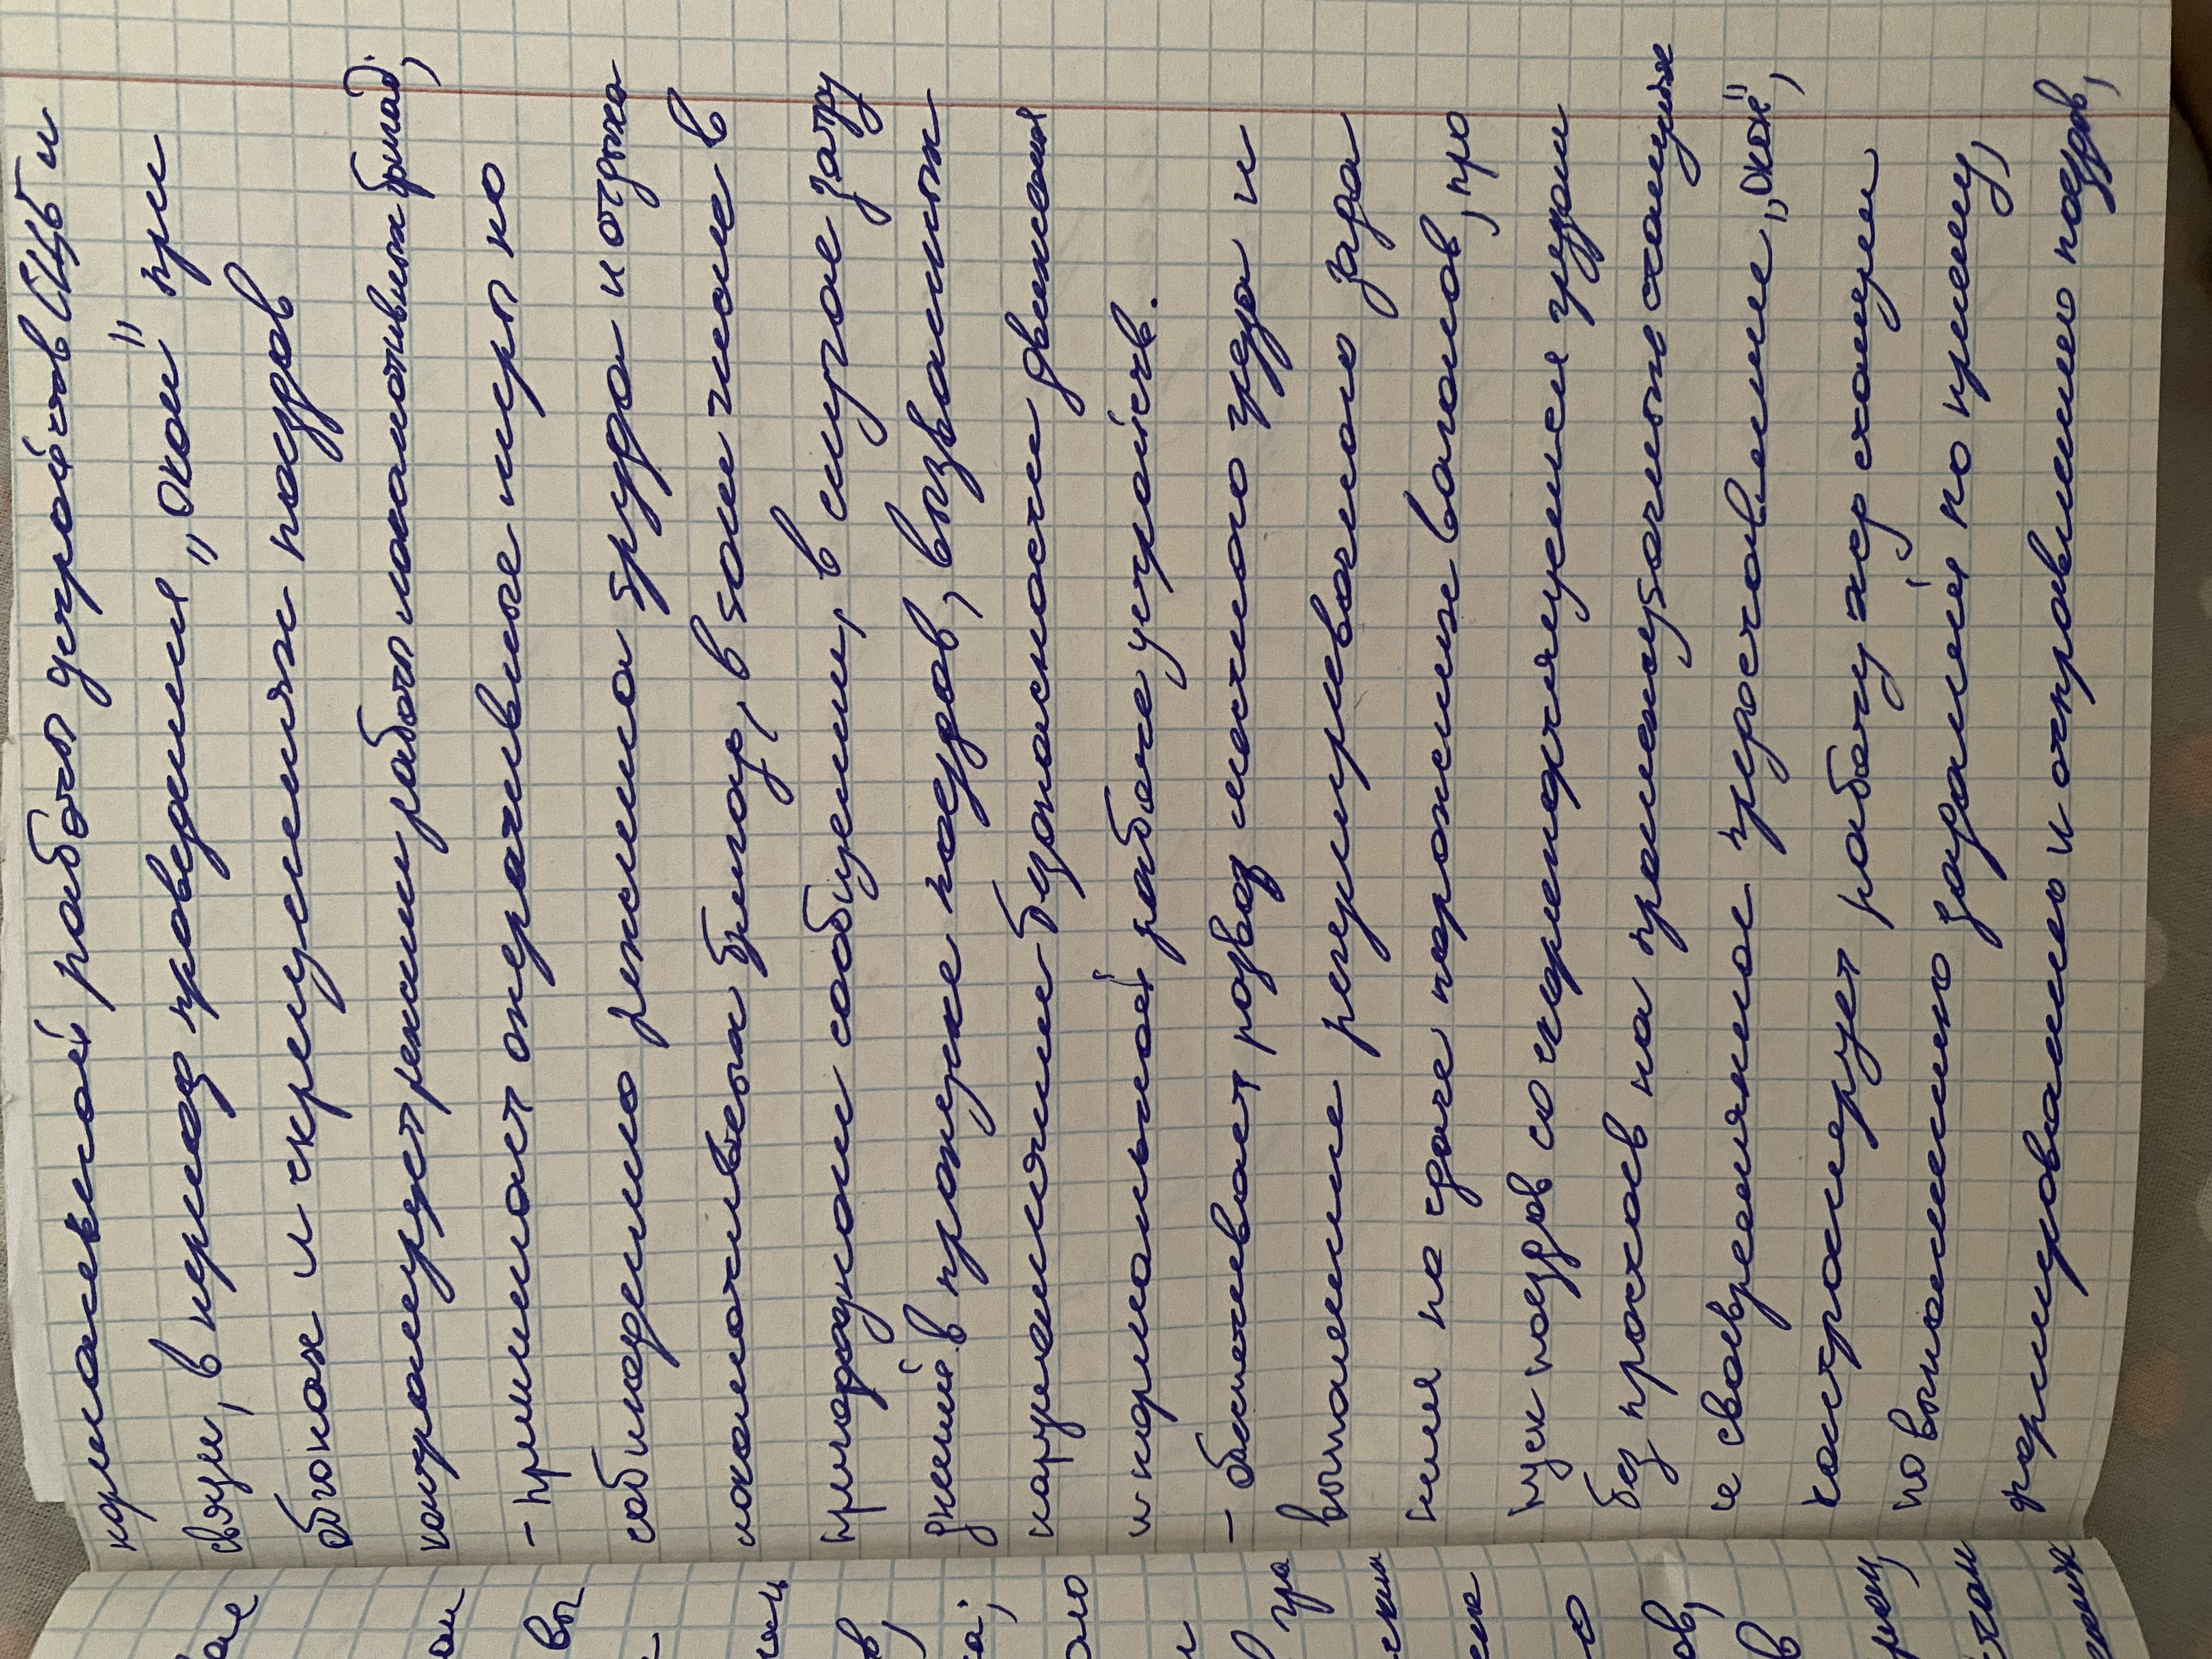 нормальной работы устройств СЦБ и
связи, в период проведения „окон" при
обгонах и скрещениях поездов
контролирует режим работы локомотивных бригад;
- принимает оперативные меры по
соблюдению режима труда и отдыха
локомотивных бригад, в том числе в
пригородном сообщении, в случае затру
днений в пропуске поездов, вызванных
нарушениями безопасности движения
и нормальной работе устройств.
- обеспечивает развоз местного груза и
выполнение регулировочного зада
ния по сдаче порожних вагонов, про
пуск поездов со скоропортящемся грузом
без простоев на промежуточных станциях
и своевременное предоставление „окон",
контролирует работу ж.р станции
по выполнению заданий по приему,
формированию и отправлению поездов,